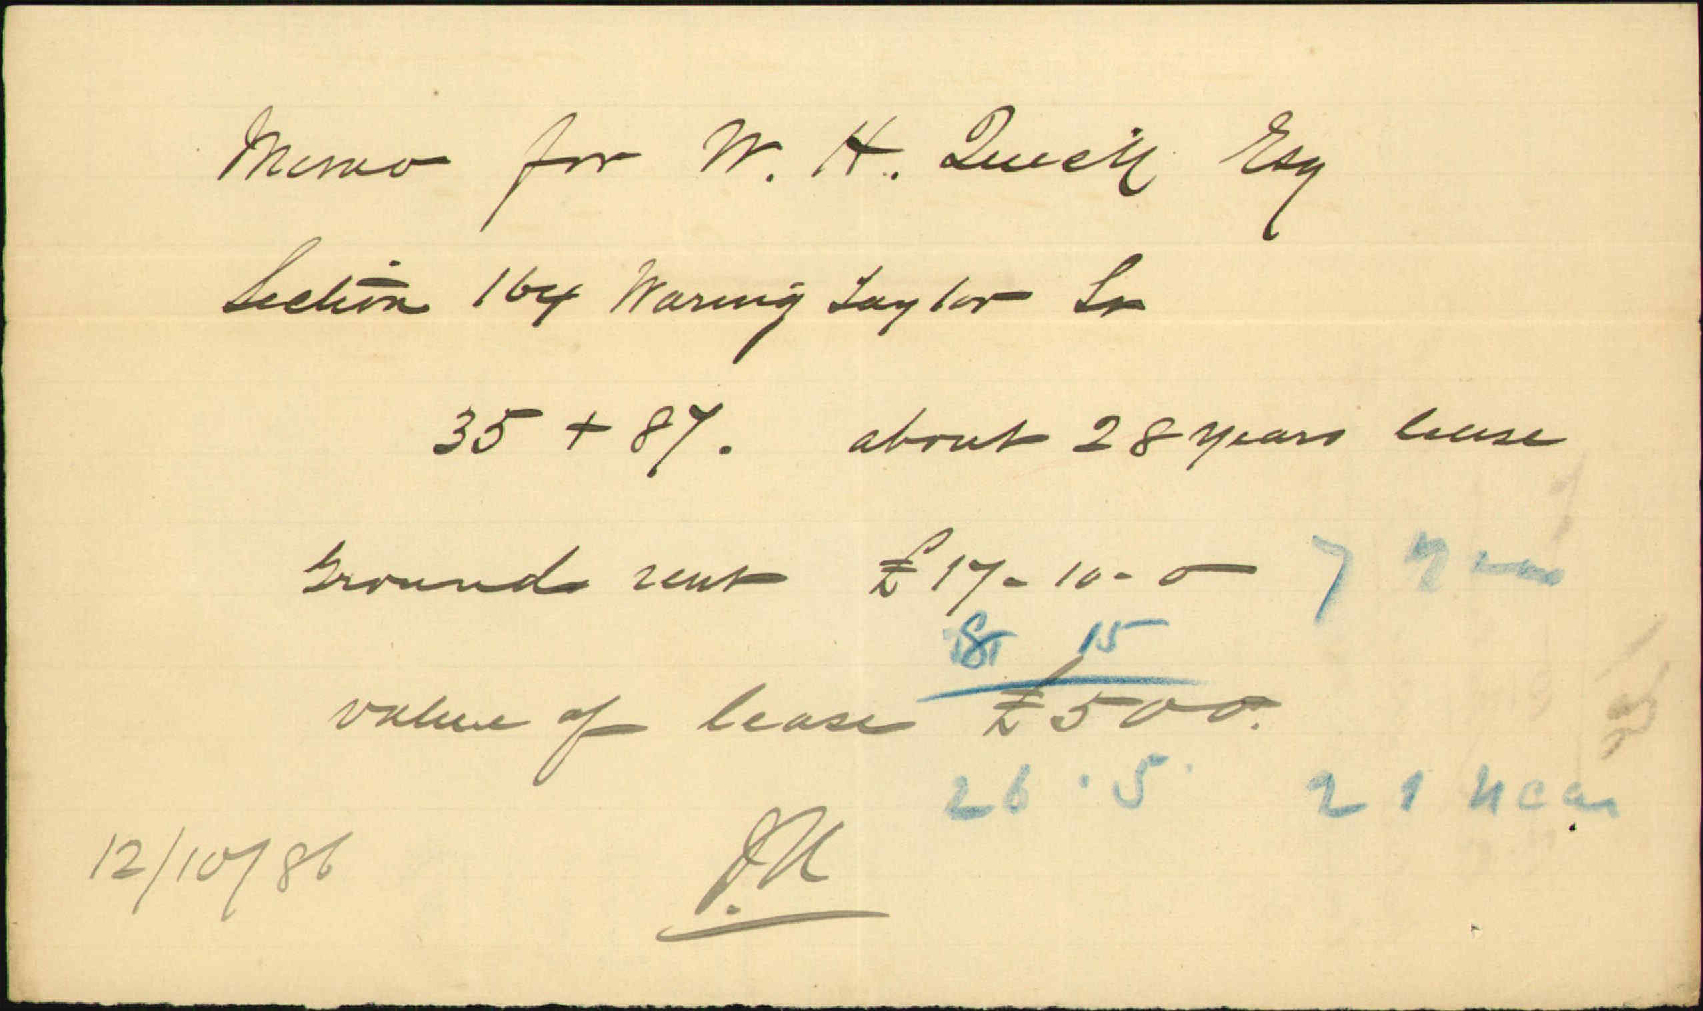 Memo for W. H. Quick Esq
Section 164 Waring Taylor St
35 + 87. about 28 years lease
Ground rent £17-10-0 7 years
15
value of lease £500.
26.5. 21 years
12/10/86